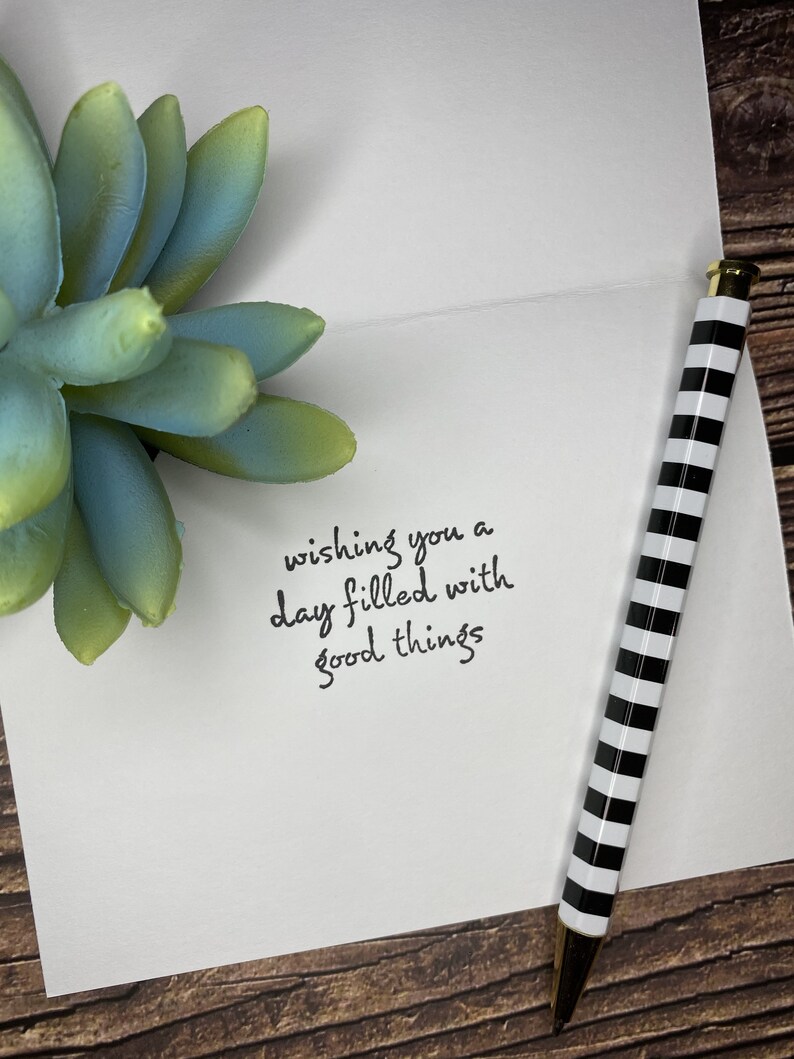 wishing you a
day filled with
good things